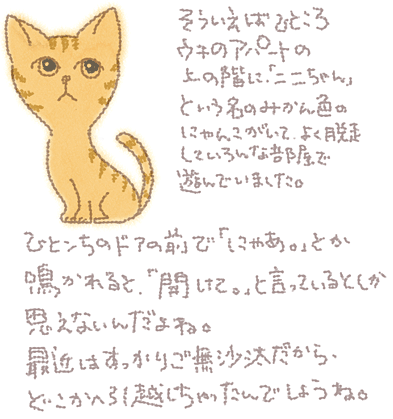 そういえばひところ
ウチのアパートの
上の階に、「ニニちゃん」
という名のみかん色の
にゃんこがいて、よく脱走
していろんな部屋で
遊んでいました。
ひとンちのドアの前で「にゃあ。」とか
鳴かれると、「開けて。」と言っているとしか
思えないんだよね。
最近はすっかりご無沙汰だから、
どこかへ引越しちゃったんでしょうね。